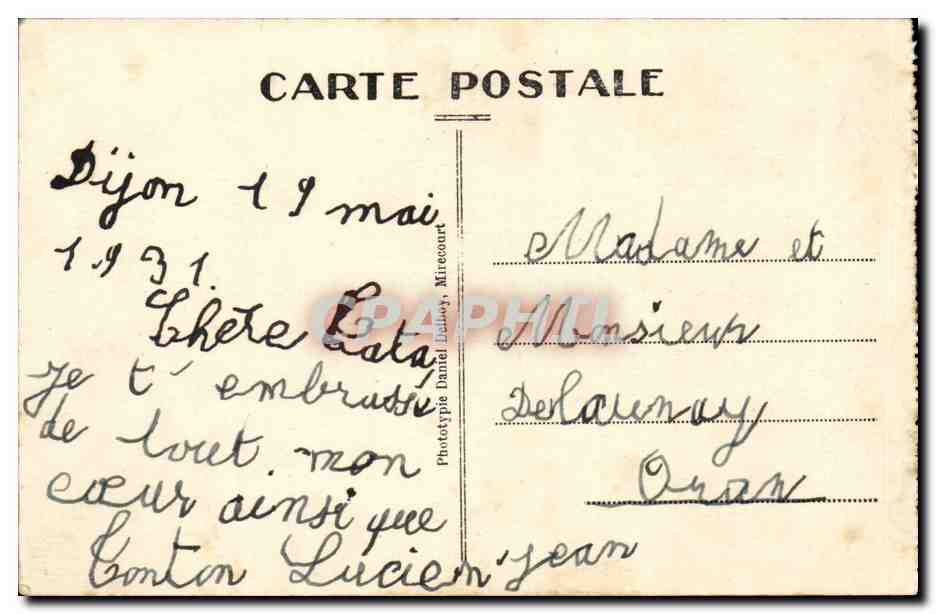 CARTE POSTALE
Dijon 19 mai
1931.
Chère Tata
je t'embrasse
de tout mon
cœur ainsi que
Tonton Lucien Jean
Phototypie Daniel Delboy, Mirecourt
CPAPHIL
Madame et
Monsieur
Delaunay
Oran